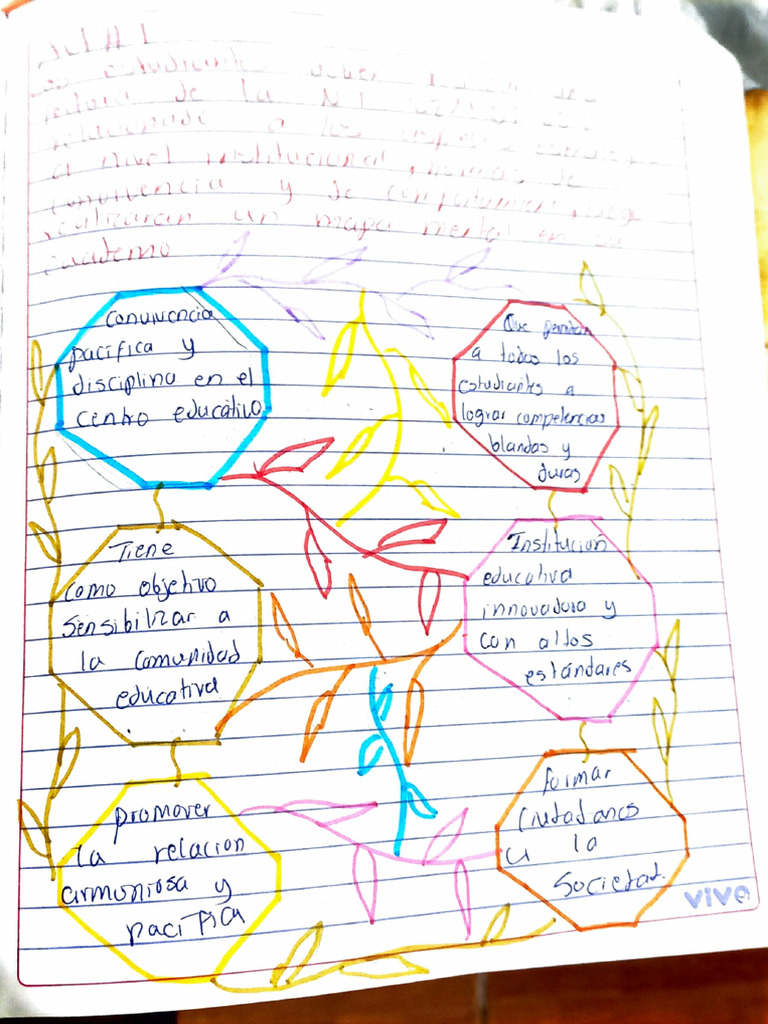 estudiantes
de la
a los
a nivel institucional
convivencia y de
realizaran un mapa mental en su
cuaderno
Convivencia
pacifica y
disciplina en el
centro educativo
Que permitan
a todos los
estudiantes a
lograr competencias
blandas y
duras
Tiene
como objetivo
sensibilizar a
la comunidad
educativa
Institución
educativa
innovadora y
con altos
estándares
promover
la relacion
armoniosa y
pacifica
formar
ciudadanos
a la
Sociedad.
vive